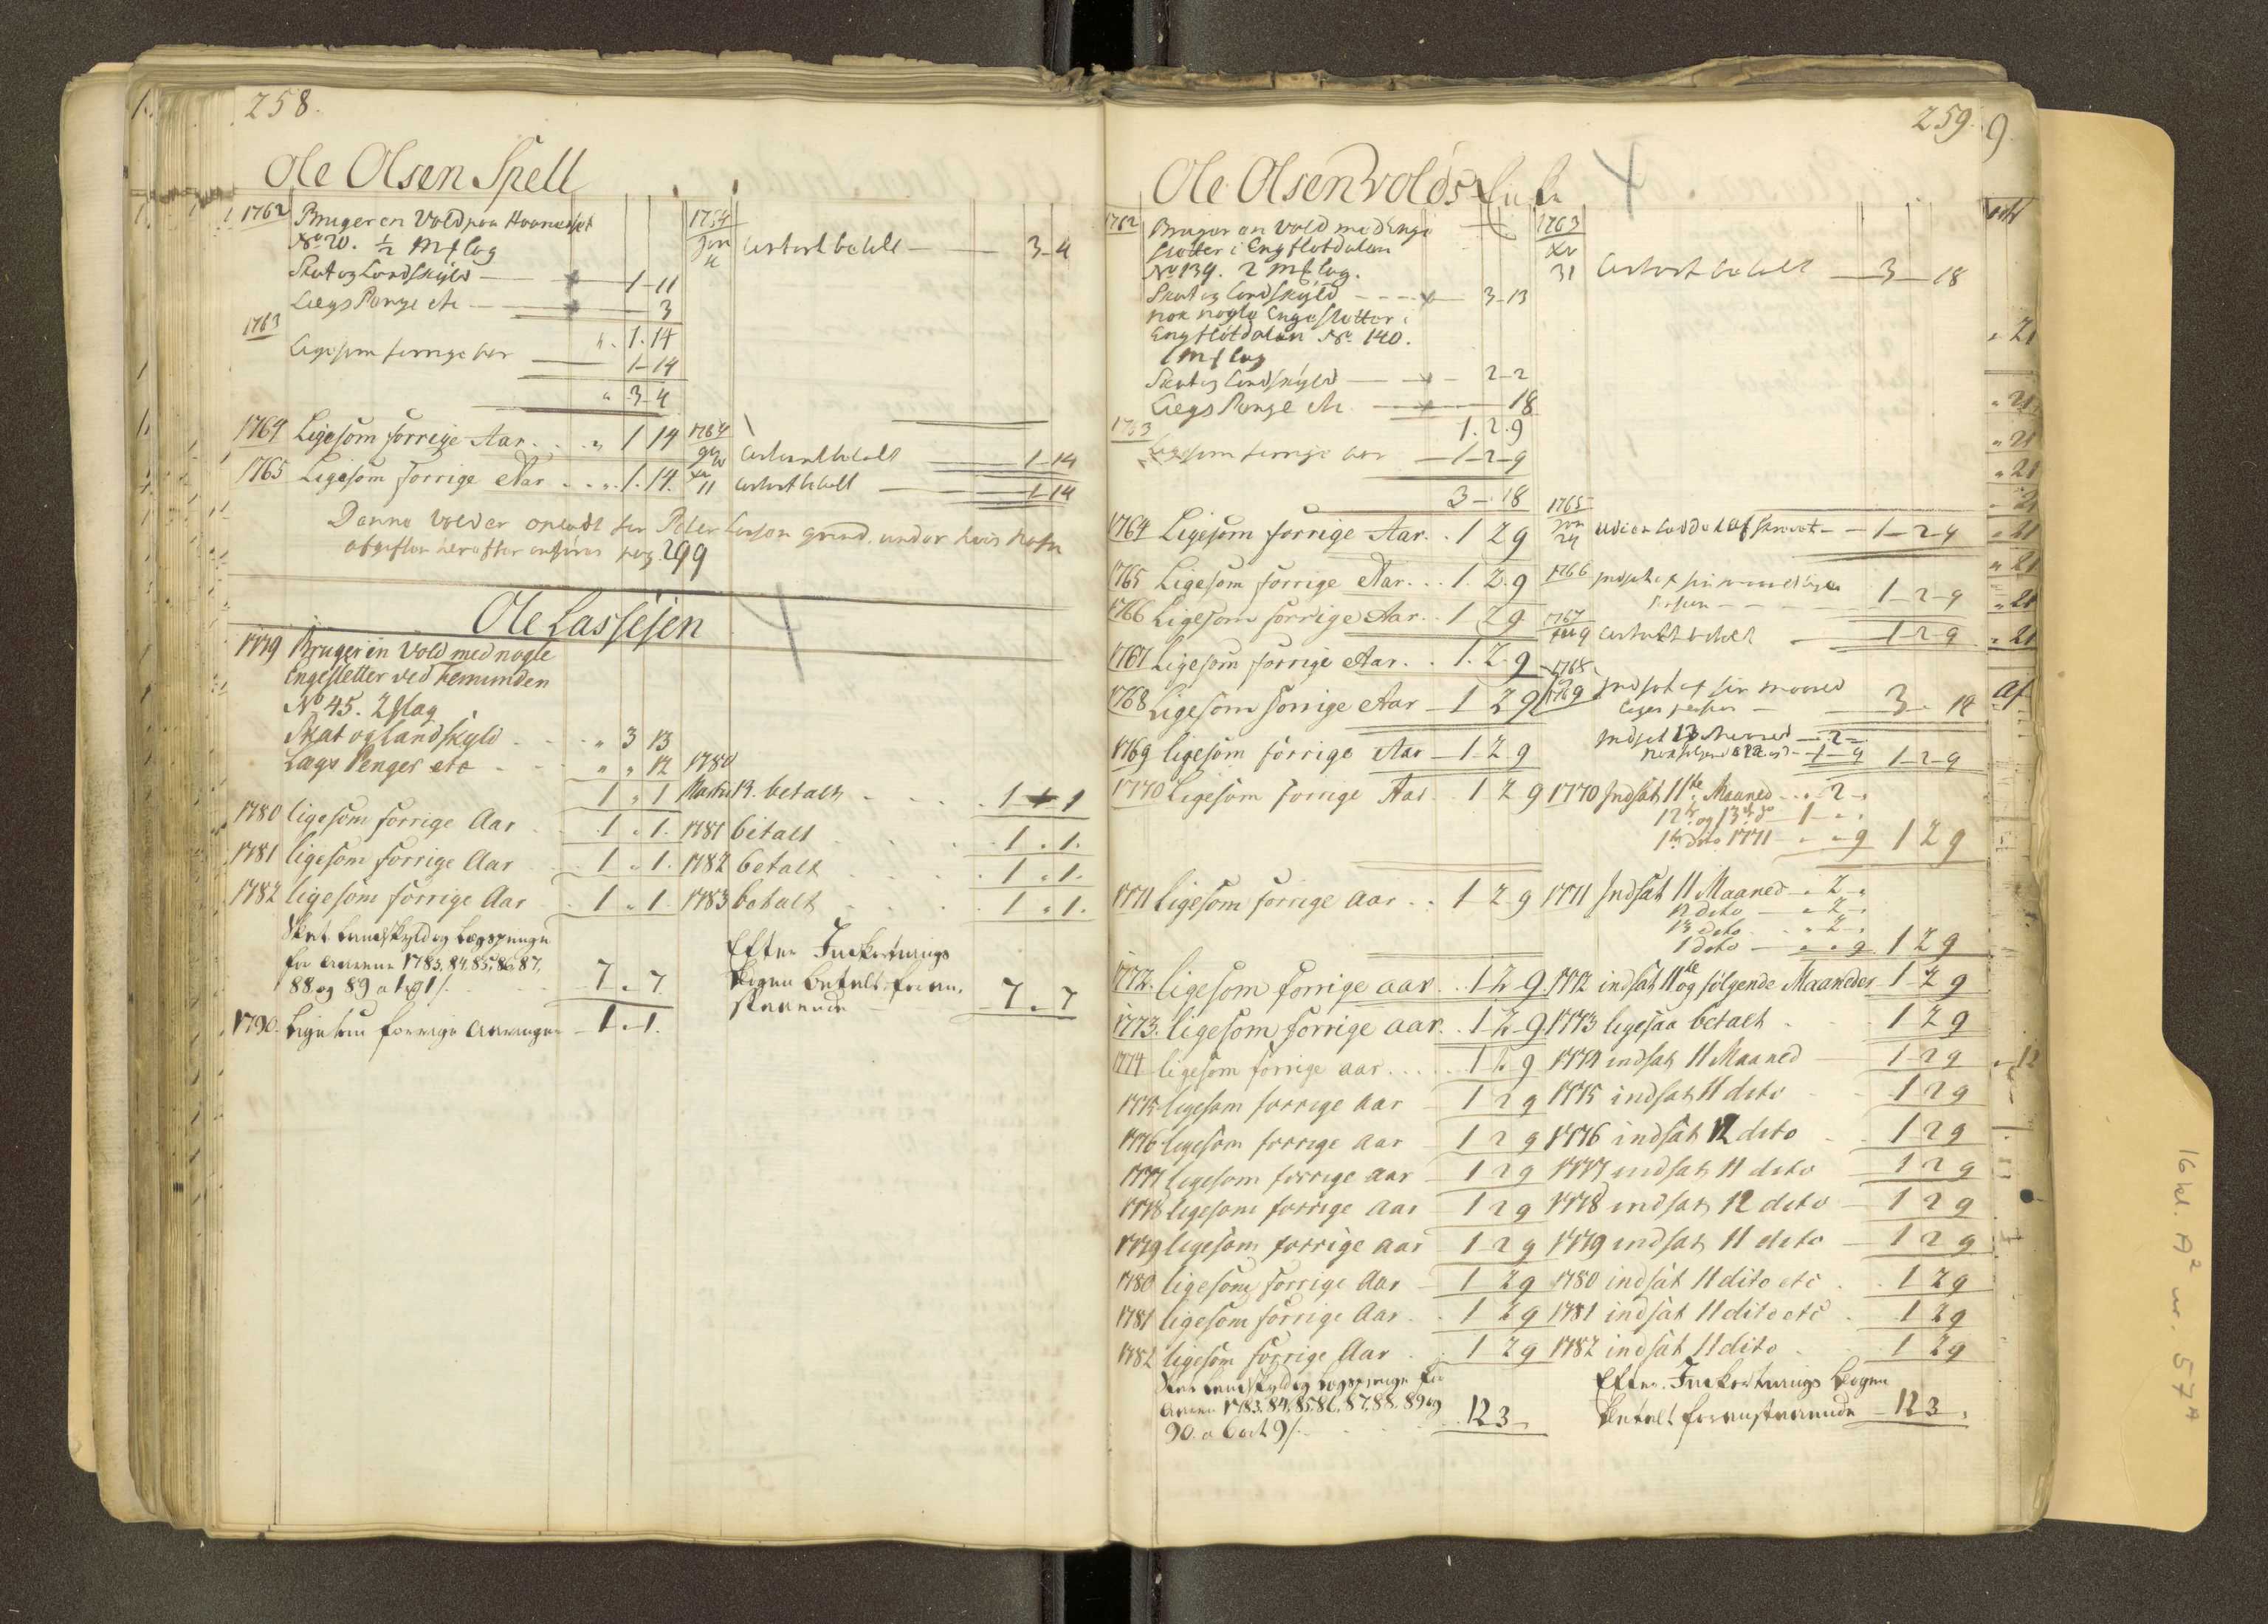 258.
Ole Olsen Spell
1762 Bruger en Vold paa Haaneset
No 20. ½ Mf lag
Skat og Landskyld 1-11
Lægs Penge etc 3
" . 1. 14
1763 Ligesom forrige her 1-14
" 3-4
1764 Ligesom forrige Aar . . " 1 14
1765 Ligesom forrige Aar . . " 1. 14.
Denne Vold er opladt for Peder Larsen grind. under hvis Nafn
afgiften herefter anføres pag. 299
1764 Jan contant betalt 3-4
1764 contant betalt 1-14
11 contant betalt 1-14
Ole Lassesen
1779 Bruger en Vold med nogle
Engesletter ved Femunden
No 45. 2 flag
Skat og Landskyld . . " 3 13
Lægs Penger etc . . " " 12
1 " 1
1780 ligesom forrige Aar 1 " 1.
1781 ligesom forrige Aar 1 " 1.
1782 ligesom forrige Aar 1 " 1.
Skat Landskyld og Lægspenge
for Aarene 1783, 84, 85, 86, 87,
88 og 89 a 1 rd 1 / . 7 " 7
1790. Ligesom forrige Aaringer 1 " 1.
1780
Martii 13. betalt 1 1 1
1781 betalt 1 " 1.
1782 betalt 1 " 1.
1783 betalt 1 " 1.
Efter Inkorterings
Bogen betalt foran-
staaende 7 " 7
259.
9
Ole Olsen Volds
1762 Bruger en Vold med Enge
sletter i Engflotdalen
No 139. 2 Mf lag.
Skat og Landskyld 3-13
nok nogle Engesletter i
Engflotdalen No. 140.
1 Mf lag
Skat og Landskyld 2-2
Lægs Penge etc. 18
1. 2. 9
1763 Ligesom forrige her 1-2-9
3-18
1764 Ligesom forrige Aar . . 1 2 9
1765 Ligesom forrige Aar . . 1. 2. 9
1766 Ligesom forrige Aar . . 1 2 9
1767 Ligesom forrige Aar . . 1. 2. 9
1768 Ligesom forrige Aar 1 2 9
1769 ligesom forrige Aar 1-2 9
1770 Ligesom forrige Aar . . 1 2 9
1771 ligesom forrige aar . . 1 2 9
1772. ligesom forrige aar . . 1 2 9.
1773. ligesom forrige aar . . 1 2 9
1774 ligesom forrige aar . . . 1 2 9
1775 ligesom forrige aar 1 2 9
1776 ligesom forrige aar 1 2 9
1777 ligesom forrige aar 1 2 9
1778 ligesom forrige aar 1 2 9
1779 ligesom forrige aar 1 2 9
1780 ligesom forrige Aar 1 2 9
1781 ligesom forrige Aar 1 2 9
1782 ligesom forrige Aar 1 2 9
Skat Landskyld og Lægspenge for
Aaren 1783, 84, 85, 86, 87, 88, 89 og
90. a 6 ort 9 / . 12 3
1763
31 contant betalt 3-18
1765
Jan 24 1-2-9
1766 Indsat af sin maanedlige
1-2-9
1767
9 contant betalt 1-2-9
1768
1769 Indsat af sin maaned
3. 14
Indsat 13 Maaned - 2 -
1-9 1-2-9
1770 Indsat 11te Maaned . . 2 "
12te og 13de do 1 " "
1te dito 1771 " " 9 1 2 9
1771 Indsat 11 Maaned " 2 "
12 dito " 2 "
13 dito " 2 "
1 dito " " 9 1 2 9
1772 indsat 11te og følgende Maaneder 1 2 9
1773 ligesaa betalt 1 2 9
1774 indsat 11 Maaned 1 2 9
1775 indsat 11 dito 1 2 9
1776 indsat 12 dito 1 2 9
1777 indsat 11 dito 1 2 9
1778 indsat 12 dito 1 2 9
1779 indsat 11 dito 1 2 9
1780 indsat 11 dito etc 1 2 9
1781 indsat 11 dito etc 1 2 9
1782 indsat 11 dito 1 2 9
Efter Inkorterings Bogen
betalt foranstaaende 12 3
16 kl. A² nr. 57 A